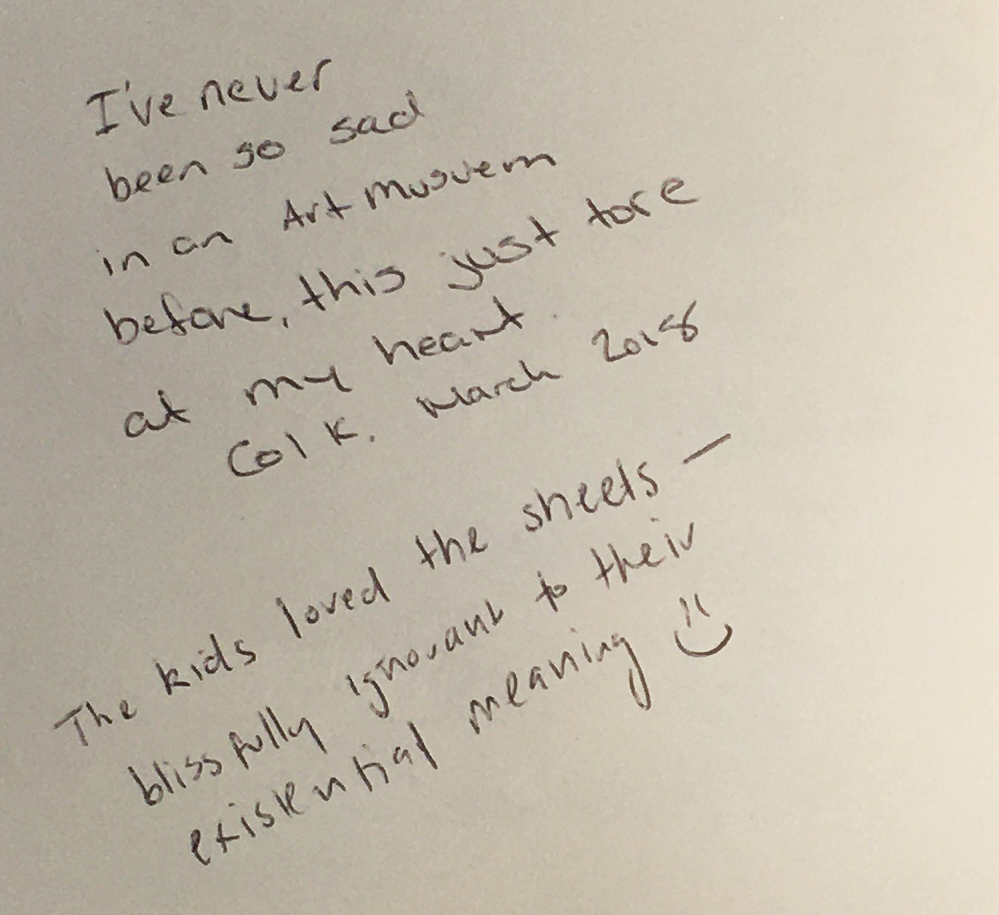 I've never
been so sad
in an Art Museum
before, this just tore
at my heart.
Col K. March 2018
The kids loved the sheets —
blissfully ignorant to their
existential meaning :)